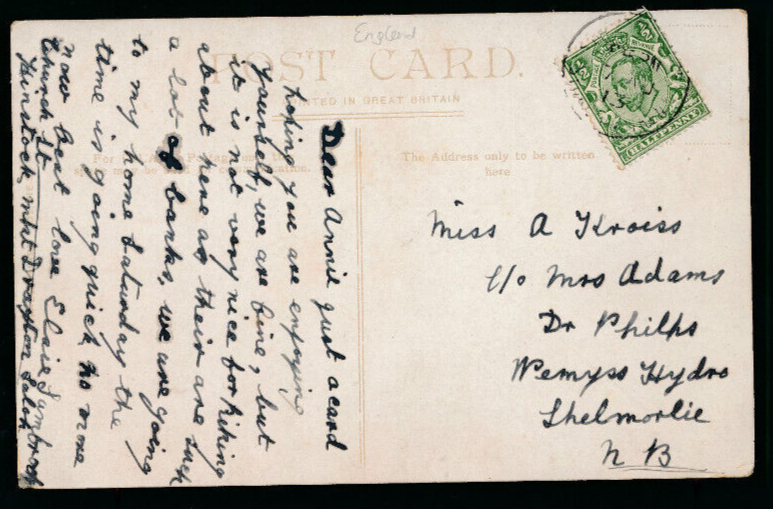 England
POST CARD.
PRINTED IN GREAT BRITAIN
The Address only to be written
here
Dear Annie just a card
hoping you are enjoying
yourself, we are fine, but
it is not very nice for hiking
about here as their are such
a lot of banks, we are going
to my home Saturday the
time is going quick, no more
now best love Elsie Sambrook
Church St
Hinstock mkt Drayton Salop
Miss A Kroiss
c/o Mrs Adams
Dr Philps
Wemyss Hydro
Skelmorlie
N B
HALFPENNY